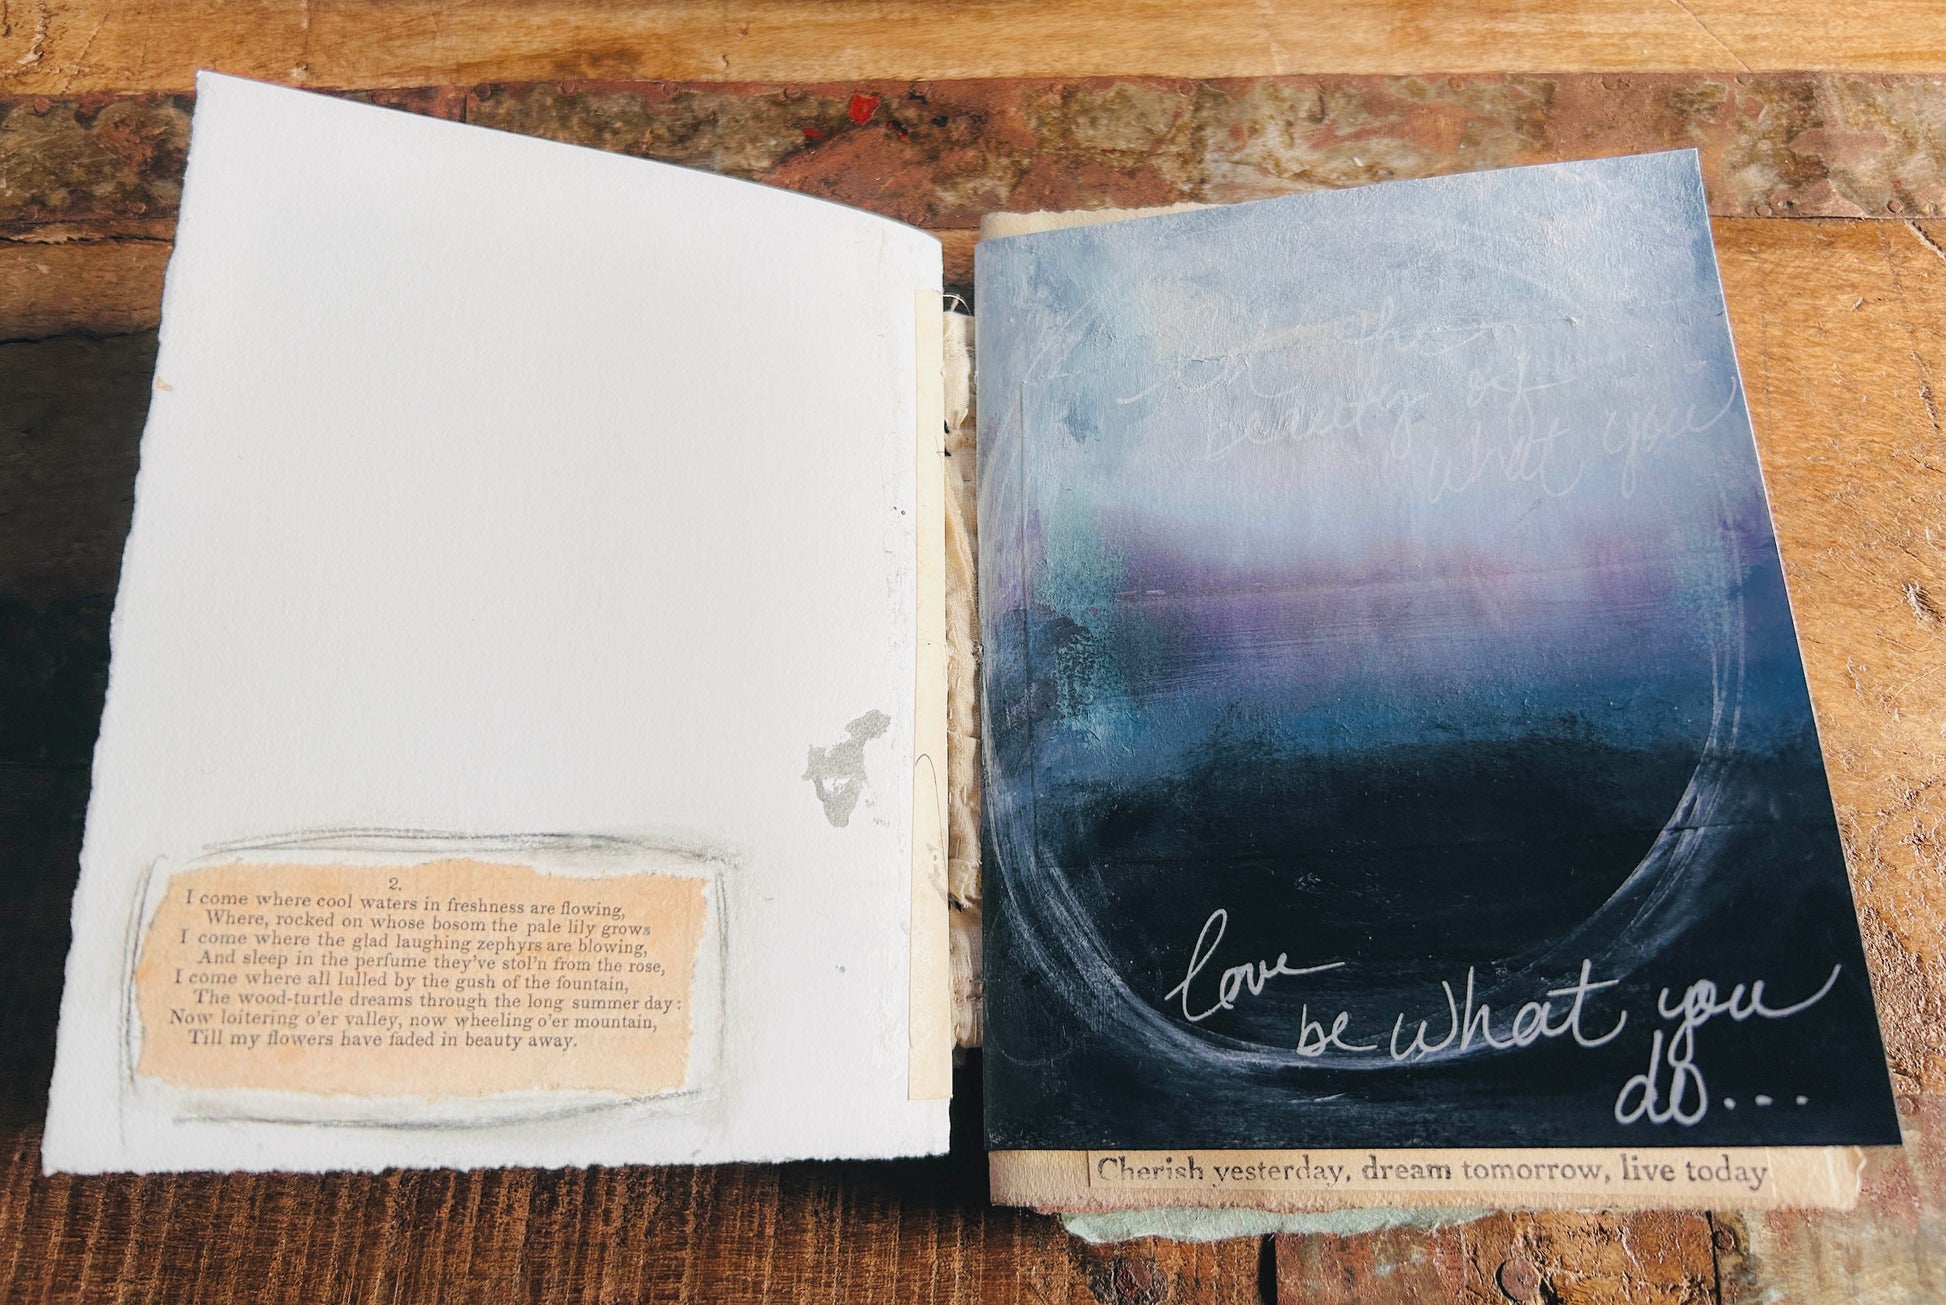 2.
I come where cool waters in freshness are flowing,
Where, rocked on whose bosom the pale lily grows
I come where the glad laughing zephyrs are blowing,
And sleep in the perfume they've stol'n from the rose,
I come where all lulled by the gush of the fountain,
The wood-turtle dreams through the long summer day:
Now loitering o'er valley, now wheeling o'er mountain,
Till my flowers have faded in beauty away.
Let the
beauty of
what you
love
be what you
do...
Cherish yesterday, dream tomorrow, live today